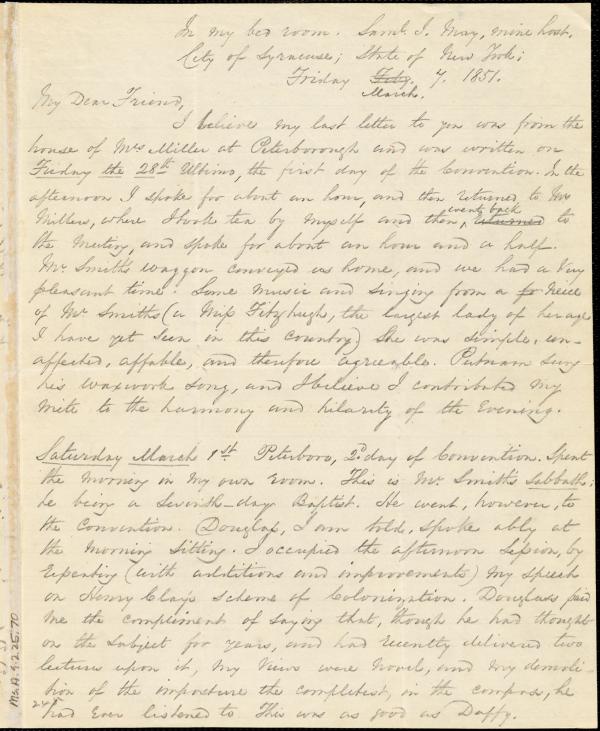 In my bed room. Saml. J. May, mine host.
City of Syracuse; State of New York;
Friday Feby. 7. 1851.
March.
My Dear Friend,
I believe my last letter to you was from the
house of Mrs Miller at Peterborough and was written on
Friday the 28th Ultimo, the first day of the Convention. In the
afternoon I spoke for about an hour, and then returned to Mrs
Millers, where I took tea by myself and then, returned went back to
the Meeting, and spoke for about an hour and a half.
Mr. Smith's waggon conveyed us home, and we had a very
pleasant time. Some music and singing from a fr Neice
of Mr Smiths (a Miss Fitzhugh, the largest lady of her age
I have yet seen in this Country) She was simple, un-
affected, affable, and therefore agreeable. Putnam sung
his waxwork song, and I believe I contributed my
mite to the harmony and hilarity of the Evening.
Saturday March 1st Peterboro, 2d. day of Convention. Spent
the Morning in my own room. This is Mr. Smith's Sabbath;
he being a Seventh-day Baptist. He went, however, to
the Convention. Douglass, I am told, spoke ably at
the Morning Sitting. I occupied the afternoon Session, by
repeating (with additions and improvements) my speech
on Henry Clay's Scheme of Colonization. Douglass paid
me the compliment of saying that, though he had thought
on the subject for years, and had recently delivered two
lectures upon it, my views were novel, and my demoli-
tion of the imposture the completest, in the compass, he
had ever listened to This was as good as Daffy.
Ms.A.9.2.25.70